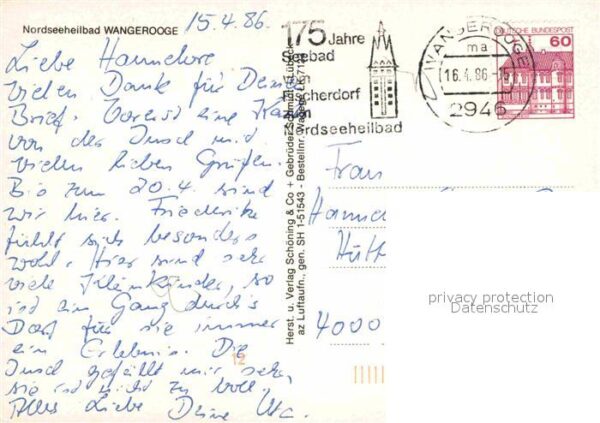 Nordseeheilbad WANGEROOGE
15.4.86.
Liebe Hannelore
vielen Dank für Deinen
Brief. Vorerst eine Karte
von der Insel und
vielen lieben Grüßen.
Bis zum 20.4. sind
wir hier. Friederike
fühlt sich besonders
wohl. Hier sind sehr
viele Kleinkinder, so
ist ein Gang durch's
Dorf für sie immer
ein Erlebnis. Die
Insel gefällt mir sehr
sie ist nicht zu voll.
Alles Liebe Deine Uta.
12
Herst. u. Verlag Schöning & Co + Gebrüder Schmidt, Lübeck
az Luftaufn., gen. SH 1-51543 - Bestellnr.
175 Jahre
Seebad
vom
Fischerdorf
zum
Nordseeheilbad
WANGEROOGE
ma
16.4.86
2946
DEUTSCHE BUNDESPOST
60
Frau
Hütt
4000
privacy protection
Datenschutz